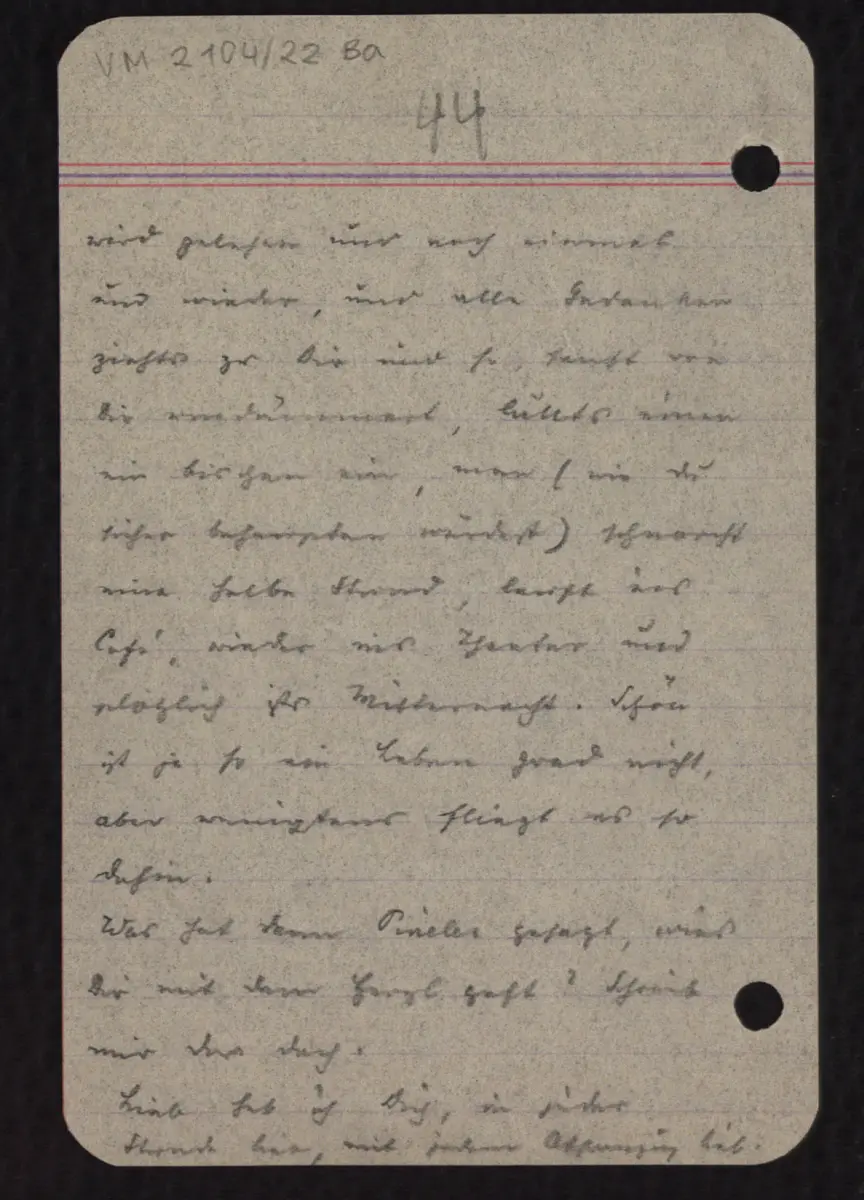 VM 2104/22 Ba
44
wird gelesen und noch einmal
und wieder, und alle Gedanken
ziehts zu Dir und so, sanft von
Dir umdämmert, lullts einen
ein bischen ein, man (wie du
sicher behaupten würdest) schnarcht
eine halbe Stund, lauft ins
Café, wieder ins Theater und
plötzlich ists Mitternacht. Schön
ist ja so ein Leben grad nicht,
aber wenigstens fliegt es so
dahin.
Was hat denn gesagt, wies
Dir mit dem Herzl geht? Schreib
mir das doch.
Lieb hab ich Dich, in jeder
Stunde hier, mit jedem Atemzug lieb.